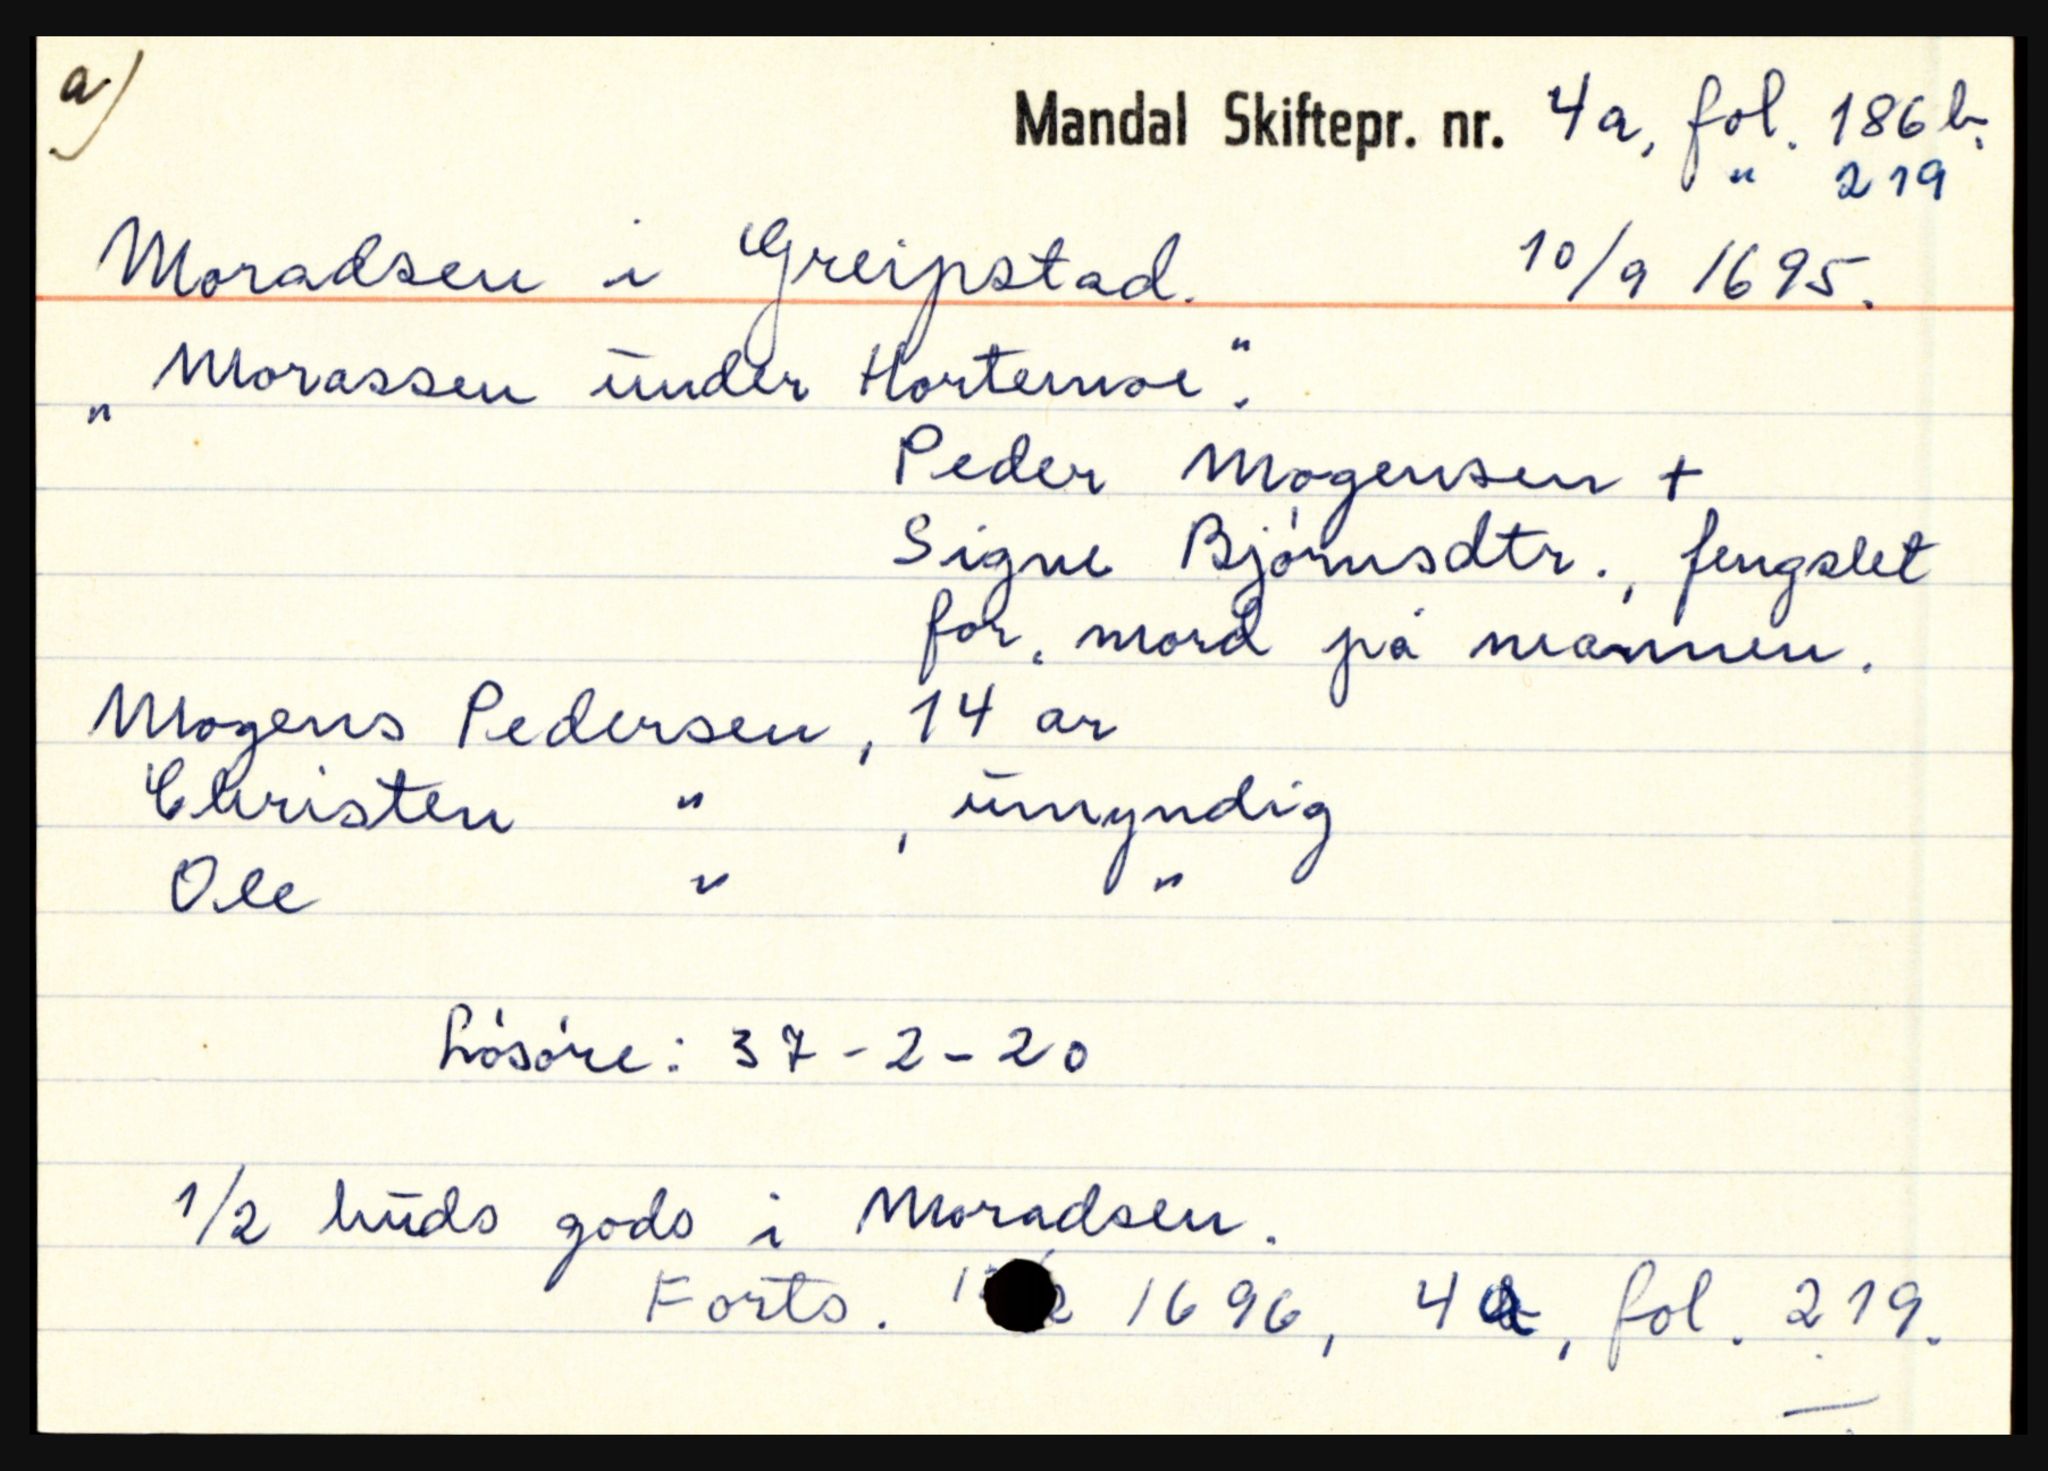 a)
Mandal Skiftepr. nr. 4a, fol. 186 b.
" 219
Moradsen i Greipstad. 10/9 1695.
„Morassen under Hortemoe".
Peder Mogensen +
Signe Bjórnsdtr., fengslet
for. mord på mannen.
Mogens Pedersen, 14 år
Christen " , umyndig
Ole " "
Lósóre: 37-2-20
1/2 huds gods i Moradsen.
Forts. 1696, 4a, fol. 219.